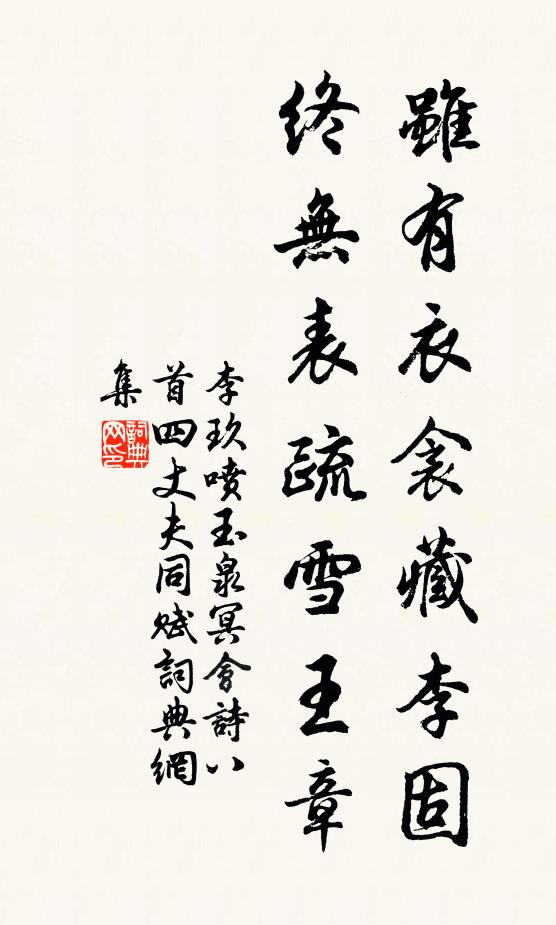 雖有衣衾藏李固
終無表疏雪王章
李玖噴玉泉冥會詩八
首四丈夫同賦詞典網
集
詞典網印